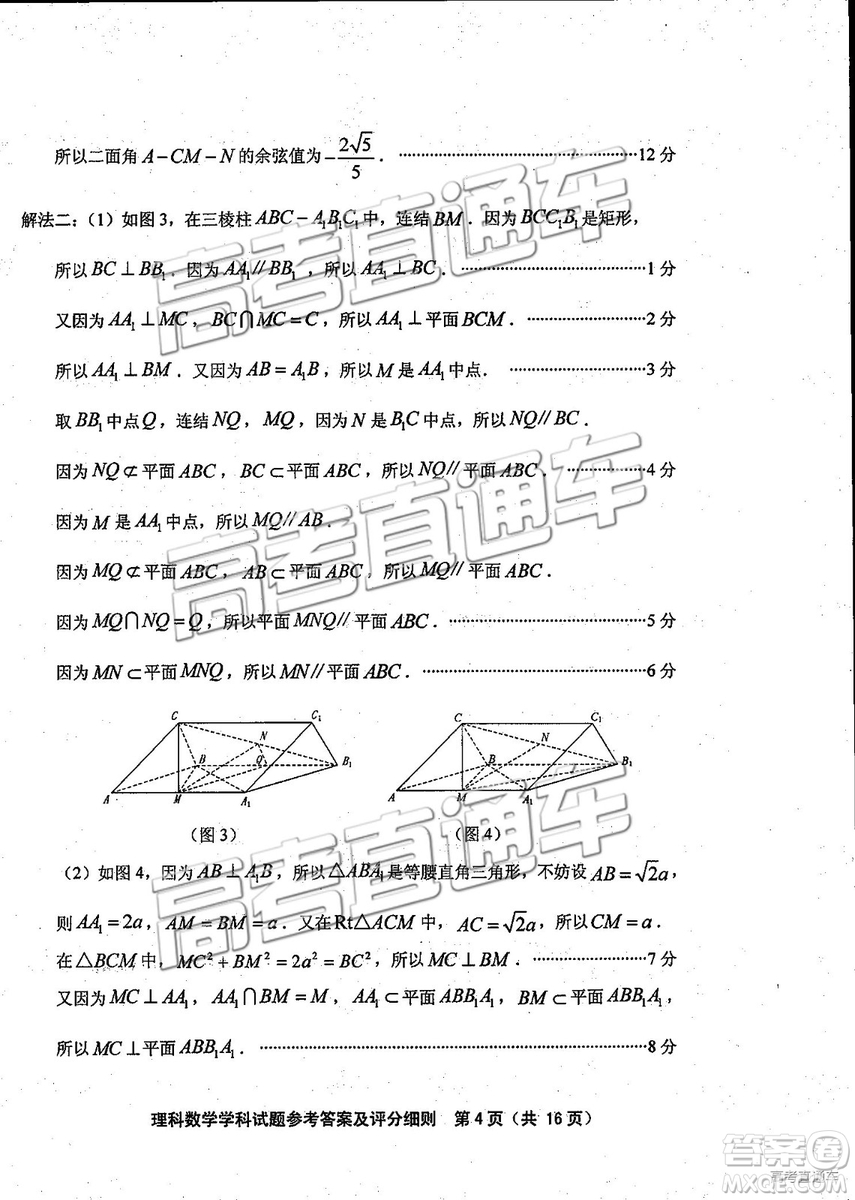 所以二面角 A－CM－N 的余弦值为 -2√5/5．……12 分
解法二：（1）如图 3，在三棱柱 ABC－A₁B₁C₁ 中，连结 BM．因为 BCC₁B₁ 是矩形，
所以 BC⊥BB₁．因为 AA₁∥BB₁，所以 AA₁⊥BC．……1 分
又因为 AA₁⊥MC，BC∩MC=C，所以 AA₁⊥平面 BCM．……2 分
所以 AA₁⊥BM．又因为 AB=A₁B，所以 M 是 AA₁ 中点．……3 分
取 BB₁ 中点 Q，连结 NQ，MQ，因为 N 是 B₁C 中点，所以 NQ∥BC．
因为 NQ⊄平面 ABC，BC⊂平面 ABC，所以 NQ∥平面 ABC．……4 分
因为 M 是 AA₁ 中点，所以 MQ∥AB．
因为 MQ⊄平面 ABC，AB⊂平面 ABC，所以 MQ∥平面 ABC．
因为 MQ∩NQ=Q，所以平面 MNQ∥平面 ABC．……5 分
因为 MN⊂平面 MNQ，所以 MN∥平面 ABC．……6 分
C C₁ N B Q B₁ A M A₁
C C₁ N B B₁ A M A₁
（图 3） （图 4）
（2）如图 4，因为 AB⊥A₁B，所以△ABA₁ 是等腰直角三角形，不妨设 AB=√2a，
则 AA₁=2a，AM=BM=a．又在 Rt△ACM 中，AC=√2a，所以 CM=a．
在△BCM 中，MC²+BM²=2a²=BC²，所以 MC⊥BM．……7 分
又因为 MC⊥AA₁，AA₁∩BM=M，AA₁⊂平面 ABB₁A₁，BM⊂平面 ABB₁A₁，
所以 MC⊥平面 ABB₁A₁．……8 分
理科数学学科试题参考答案及评分细则 第 4 页（共 16 页）
高考直通车
高考直通车
高考直通车
答案卷
MXQE.COM
高考直通车